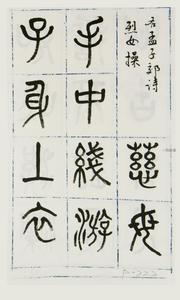 孟子郊詩
烈女操
慈母
手中綫游
子身上衣